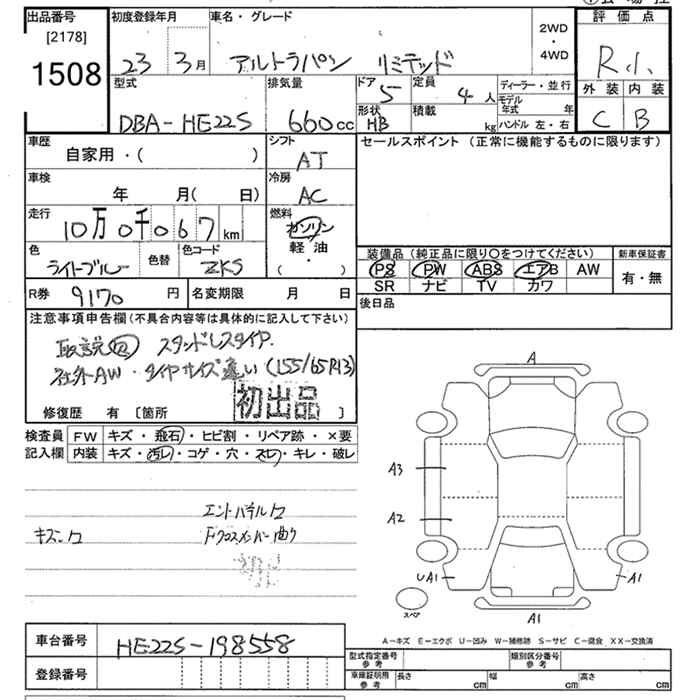 出品番号
[2178]
1508
初度登録年月
23 3月
車名・グレード
アルトラパン リミテッド
2WD
・
4WD
評価点
R.1.
外装 内装
C B
型式
DBA-HE22S
排気量
660cc
ドア
5
定員
4人
形状
HB
積載
kg
ディーラー・並行
モデル年式 年
ハンドル 左・右
車歴
自家用・( )
シフト
AT
セールスポイント (正常に機能するものに限ります)
車検
年 月( 日)
冷房
AC
走行
10万0千067km
燃料
ガソリン
軽油
・
( )
色
ライトブルー
色替
色コード
ZKS
装備品 (純正品に限り○をつけてください)
PS PW ABS エアB AW
SR ナビ TV カワ
新車保証書
有・無
R券 9170円
名変期限 月 日
後日品
注意事項申告欄(不具合内容等は具体的に記入して下さい)
取説 スタッドレスタイヤ.
社外AW・タイヤサイズ違い(155/65R13)
初出品
修復歴 有 〔箇所 〕
検査員 FW キズ・飛石・ヒビ割・リペア跡・×要
記入欄 内装 キズ・汚レ・コゲ・穴・スレ・キレ・破レ
A
A3
A2
UA1
A1
スペア
A1
エンドパネル
キズ
Fクロスメンバー曲り
A-キズ E-エクボ U-凹み W-補修跡 S-サビ C-腐食 XX-交換済
車台番号 HE22S-198558
登録番号
型式指定番号
参考
類別区分番号
参考
車庫証明用
参考
長さ cm
幅 cm
高さ cm